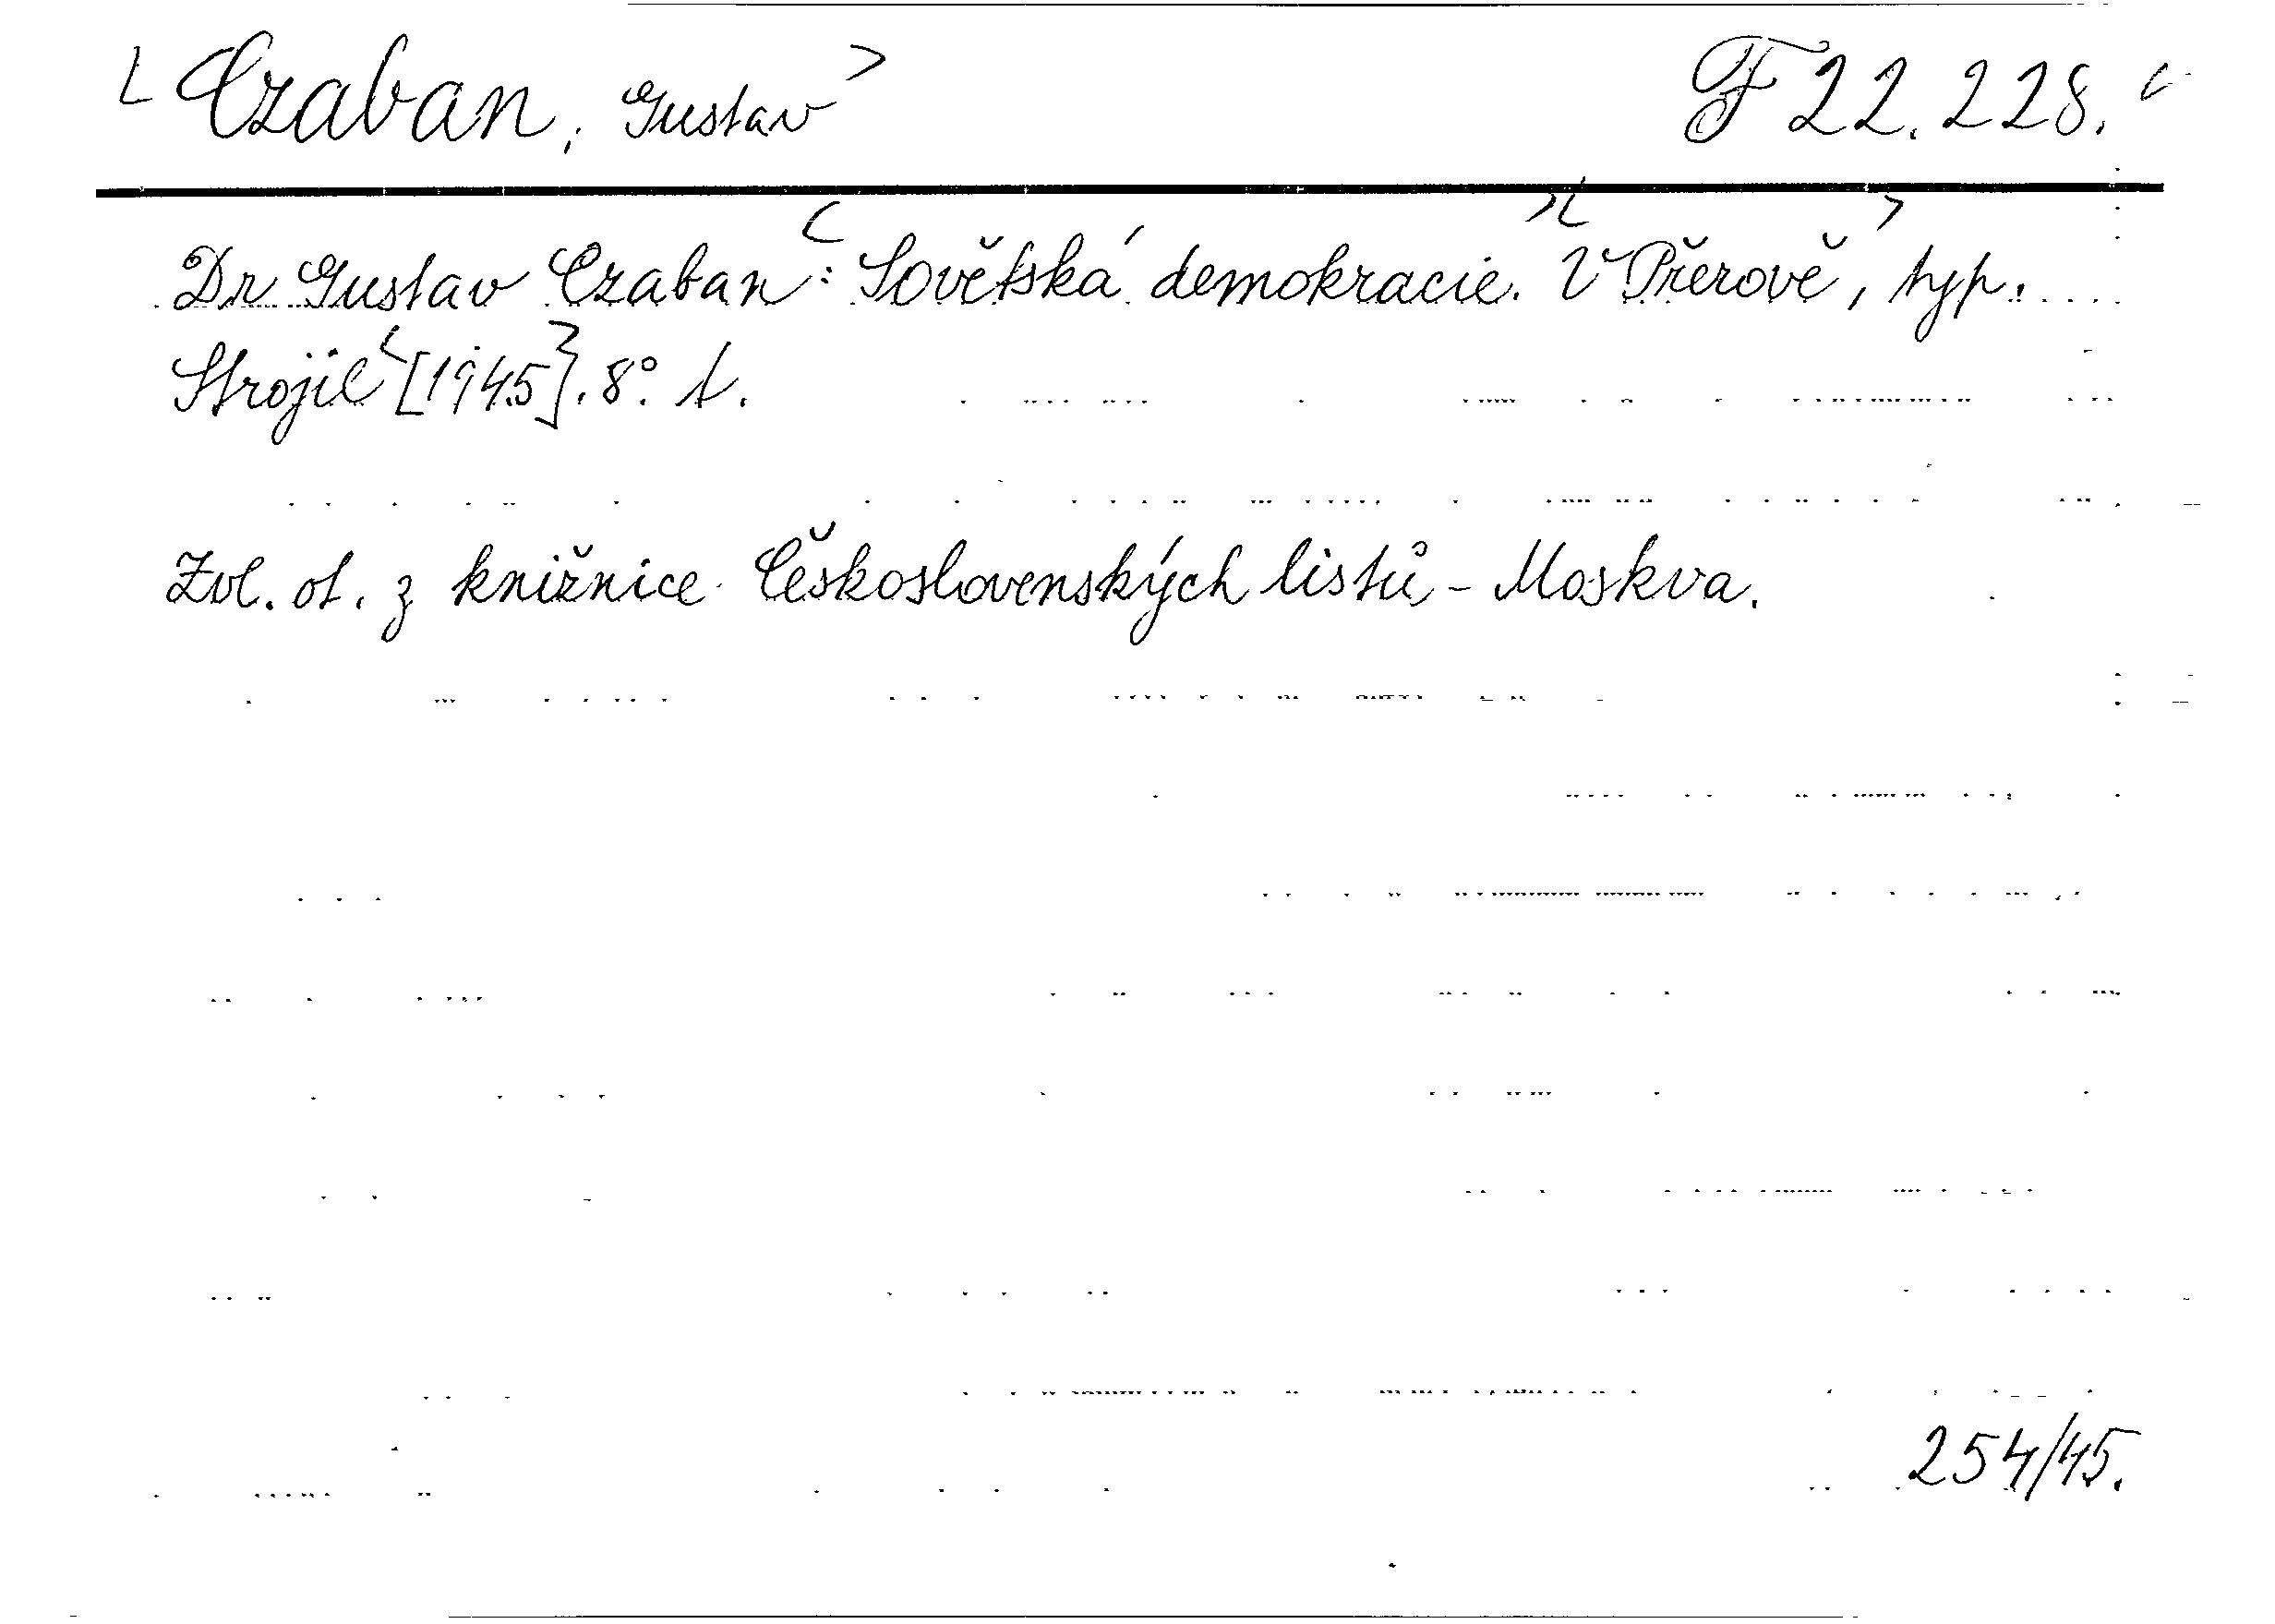 Czaban, Gustav F 22.228.
Dr Gustav Czaban: Sovětská demokracie. V Přerově, typ.
Strojil [1945]. 8°. 1.
Zvl. ot. z knižnice Československých listů - Moskva.
254/45.